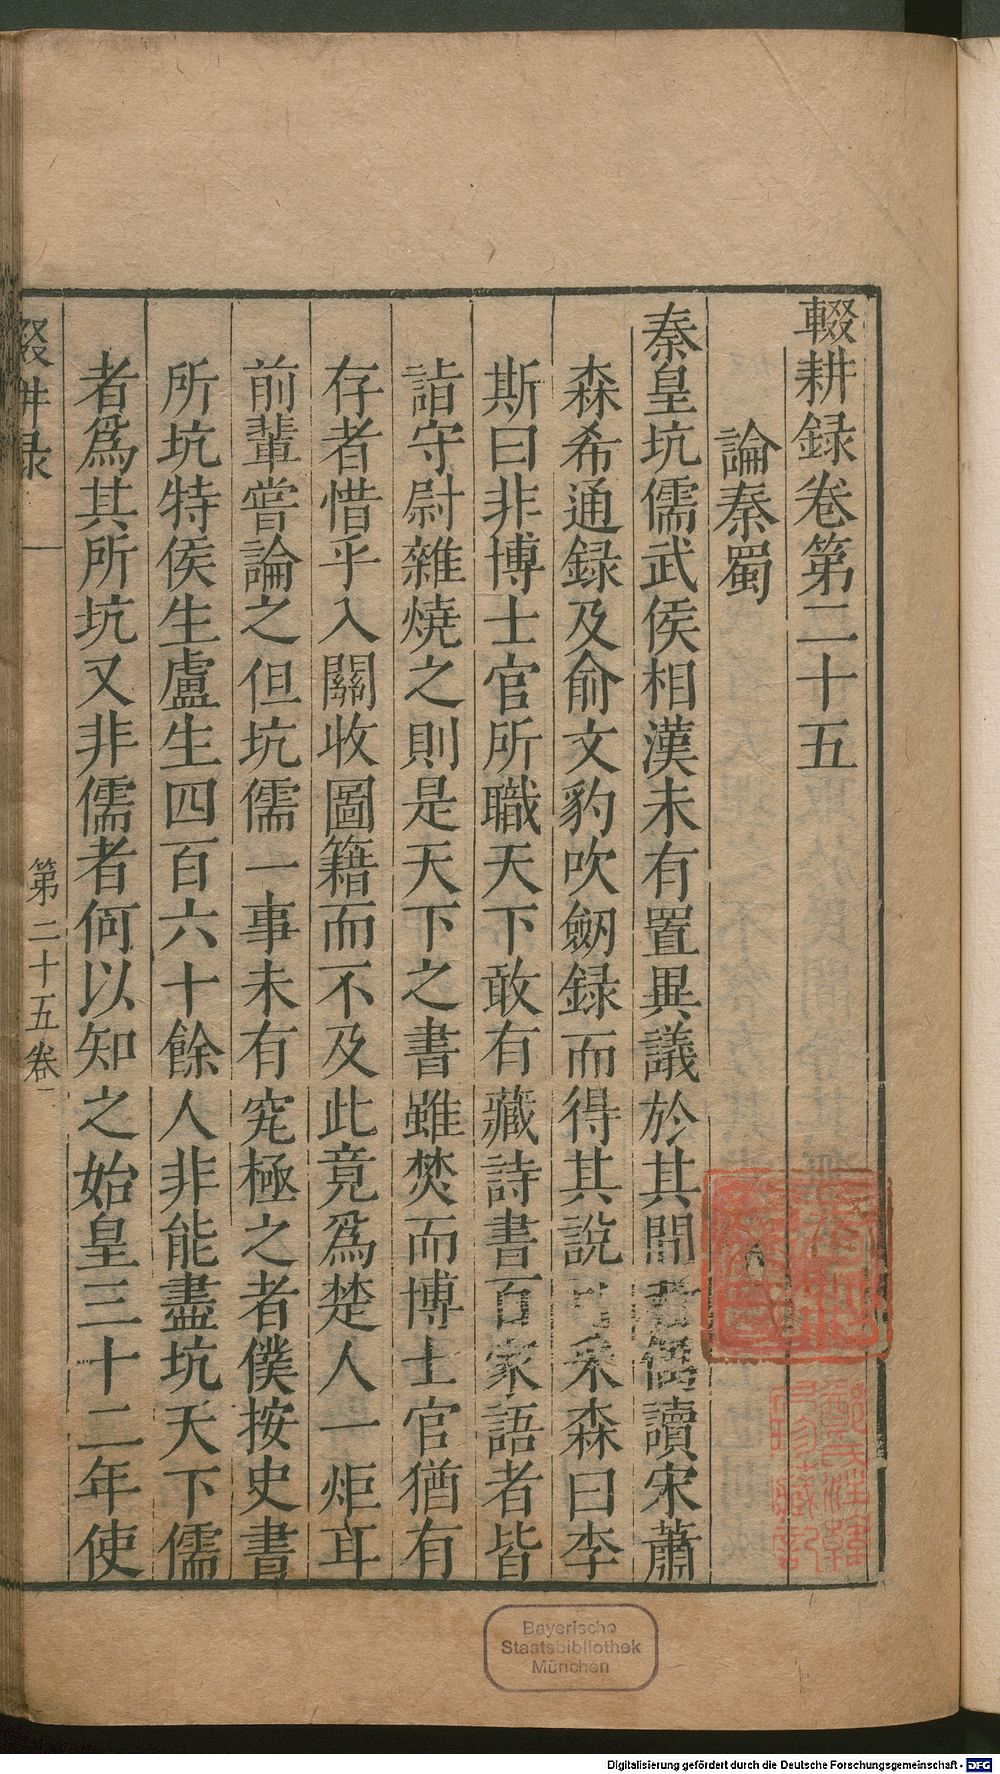 輟耕録卷第二十五
論秦蜀
秦皇坑儒武侯相漢未有置異議於其間者偶讀宋蕭
森希通録及俞文豹吹劒録而得其說采森曰李
斯曰非博士官所職天下敢有藏詩書百家語者皆
詣守尉雜燒之則是天下之書雖焚而博士官猶有
存者惜乎入關收圖籍而不及此竟爲楚人一炬耳
前輩嘗論之但坑儒一事未有究極之者僕按史書
所坑特侯生盧生四百六十餘人非能盡坑天下儒
者爲其所坑又非儒者何以知之始皇三十二年使
輟耕録
第二十五卷
Bayerische
Staatsbibliothek
München
Digitalisierung gefördert durch die Deutsche Forschungsgemeinschaft - DFG